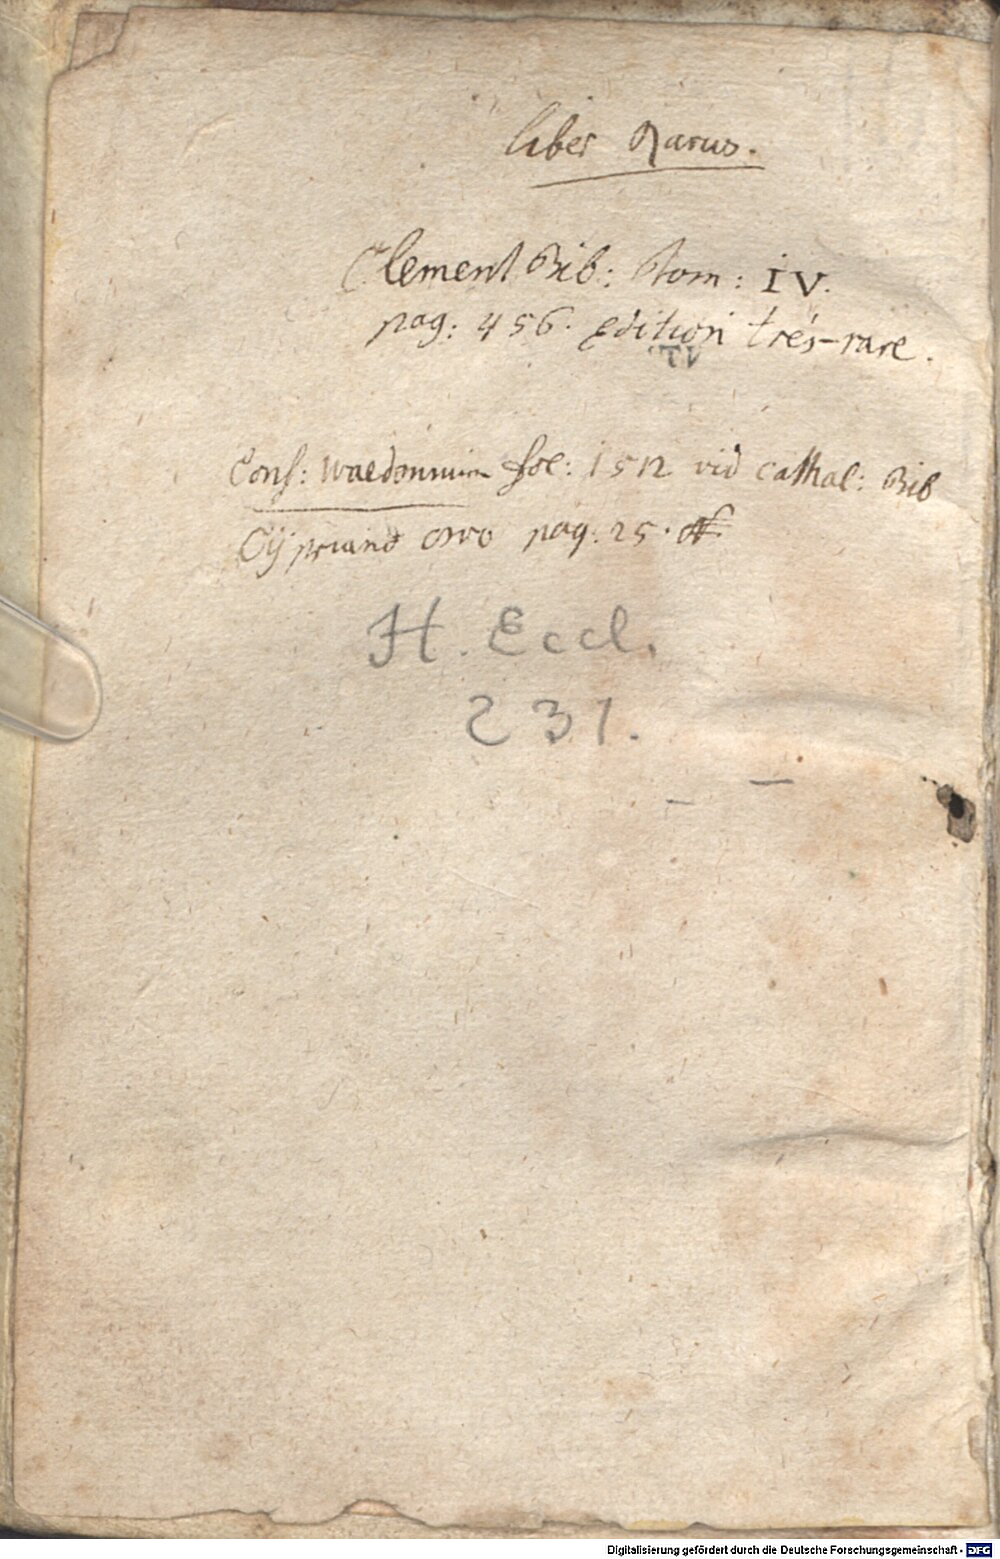 liber Rarus.
Clement Bib: Tom: IV.
pag: 456. Edition trés-rare.
IV
Conf: Waldonium fol: 1512 vid Cathal: Bib
Cÿpriano pag. 25.
H. Eccl.
231.
Digitalisierung gefördert durch die Deutsche Forschungsgemeinschaft - DFG